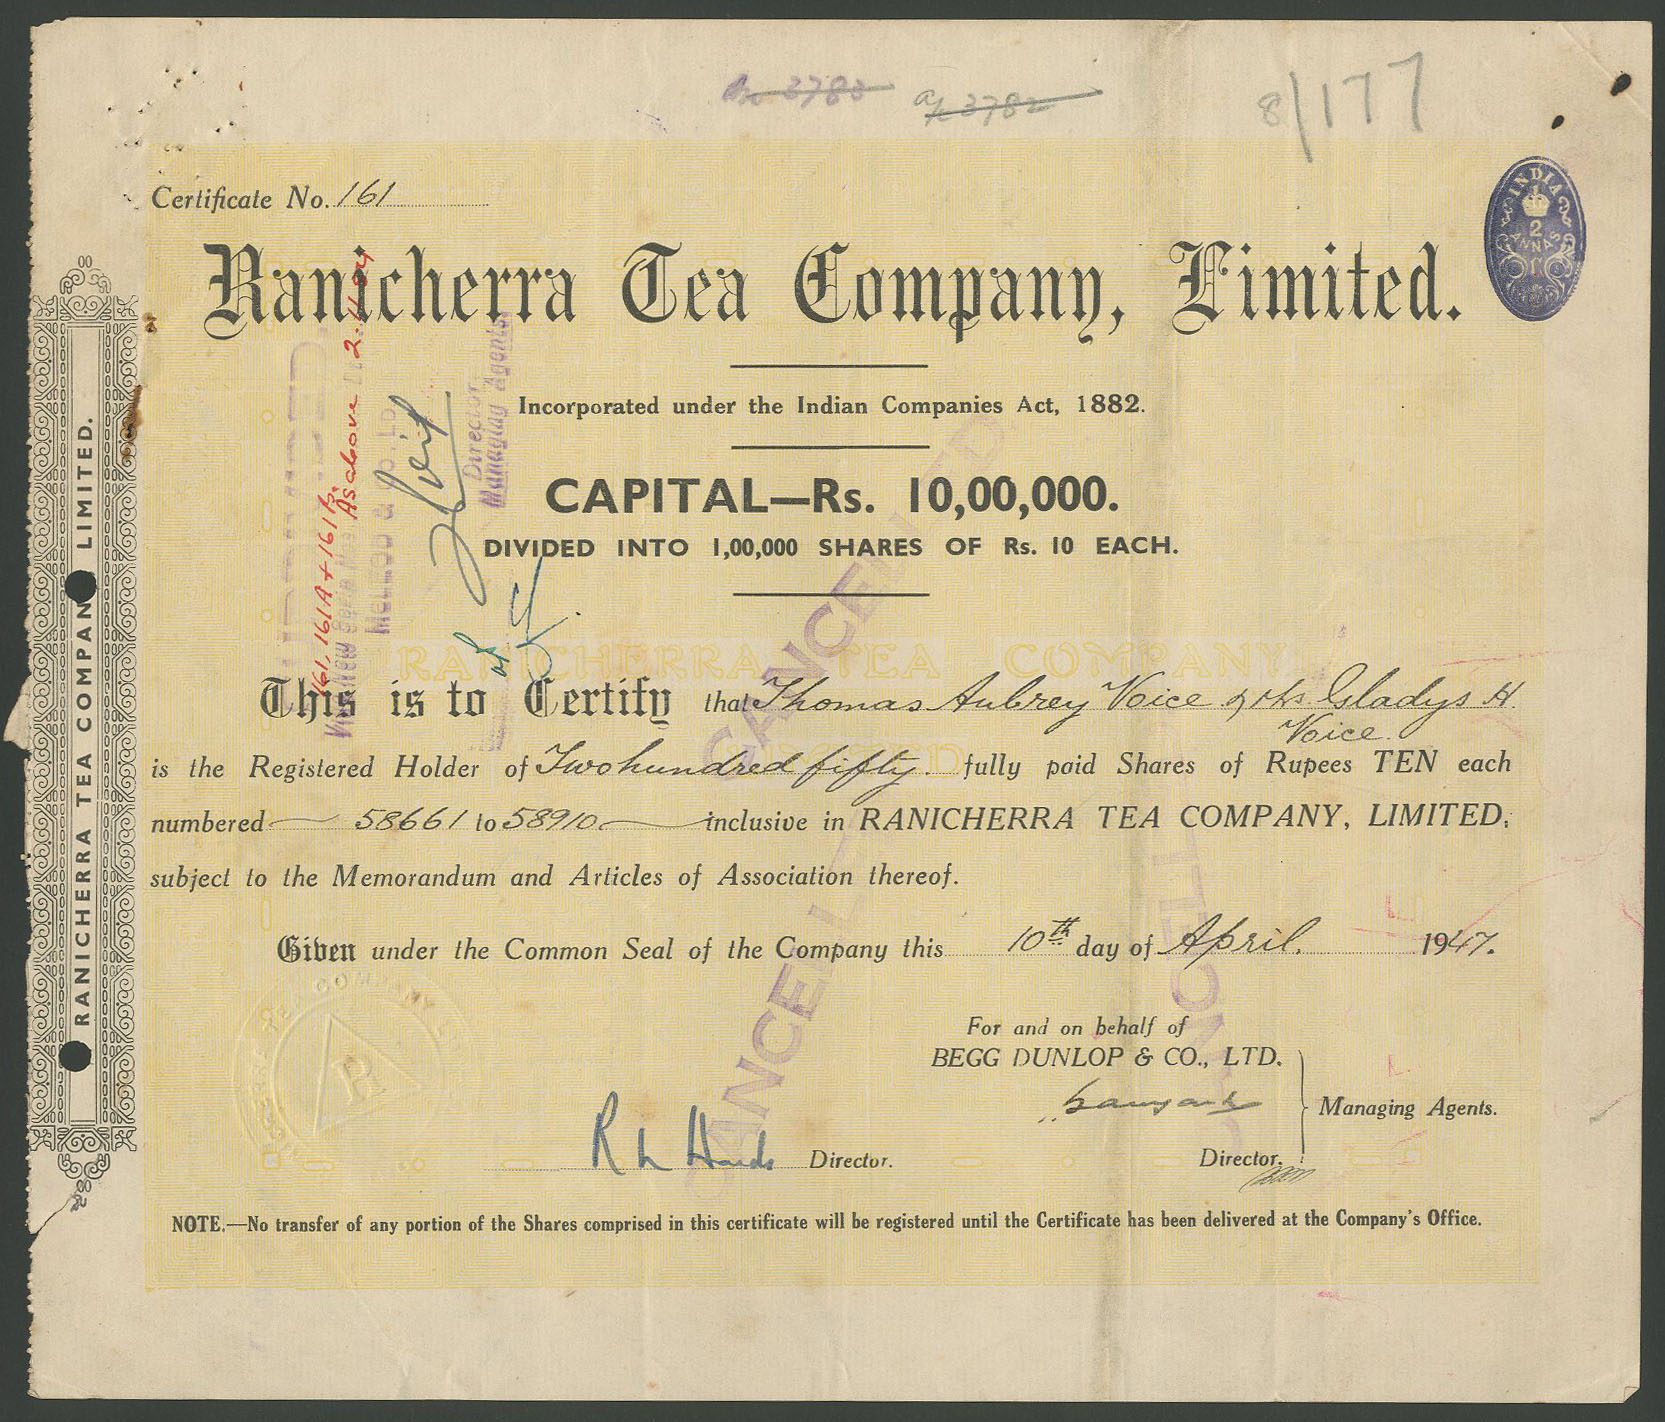 3783
a/c 3782
8/177
Certificate No. 161
INDIA
2
ANNAS
Ranicherra Tea Company, Limited.
Incorporated under the Indian Companies Act, 1882.
CAPITAL—Rs. 10,00,000.
DIVIDED INTO 1,00,000 SHARES OF Rs. 10 EACH.
RANICHERRA TEA COMPANY
LIMITED
This is to Certify that Thomas Aubrey Voice & Mrs. Gladys H.
Voice.
is the Registered Holder of Two hundred fifty. fully paid Shares of Rupees TEN each
numbered 58661 to 58910 inclusive in RANICHERRA TEA COMPANY, LIMITED,
subject to the Memorandum and Articles of Association thereof.
Given under the Common Seal of the Company this 10th day of April. 1947.
For and on behalf of
BEGG DUNLOP & CO., LTD.
Managing Agents.
Director.
Director.
NOTE.—No transfer of any portion of the Shares comprised in this certificate will be registered until the Certificate has been delivered at the Company's Office.
RANICHERRA TEA COMPANY LIMITED.
161, 161A + 161B.
As above
Director
Managing Agents
CANCELLED
CANCELLED